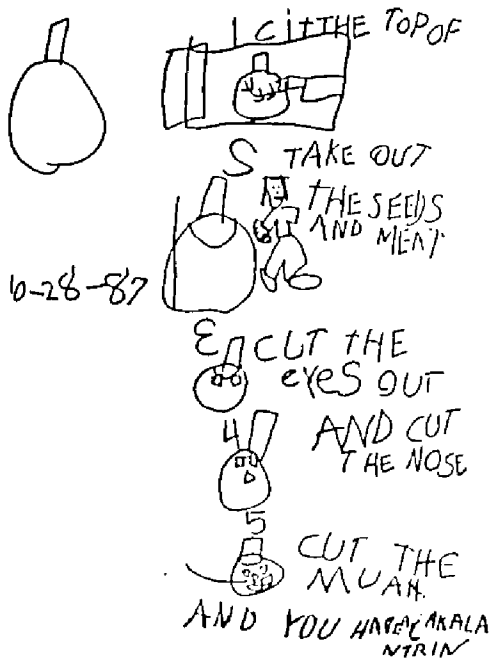 1 CiT THE TOP OF
S TAKE OUT
THE SEEDS
AND MEAT
6-28-87
3 CUT THE
eyes OUT
4 AND CUT
THE NOSE
5
CUT THE
MUAH.
AND YOU HAVE A